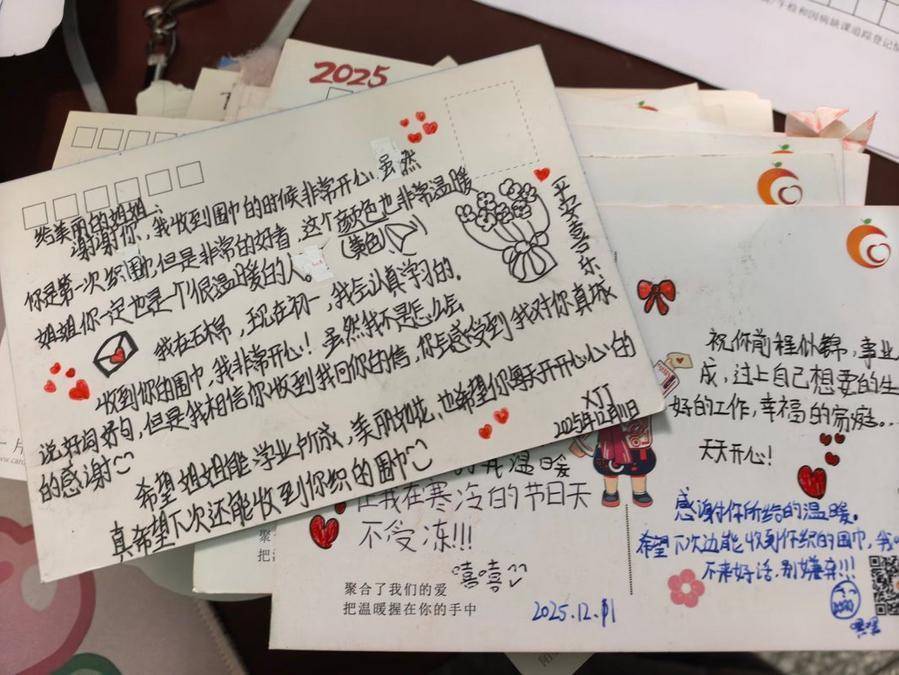 2025
给美丽的姐姐:
谢谢你,我收到围巾的时候非常开心,虽然
你是第一次织围巾,但是非常的好看,这个颜色也非常温暖
(黄色)
姐姐你一定也是一个很温暖的人。
我在五棉,现在初一,我会认真学习的。
收到你的围巾,我非常开心!虽然我不是怎么会
说好词好句,但是我相信你收到我回你的信,你会感受到我对你真诚
的感谢
希望姐姐能学业有成,美丽如花,也希望你每天开开心心的
真希望下次还能收到你织的围巾
XJJ
2025年12月11日
平安喜乐
我温暖
让我在寒冷的节日天
不受冻!!!
嘻嘻
聚合了我们的爱
把温暖握在你的手中
2025.12.11
祝你前程似锦,事业
成,过上自己想要的生
好的工作,幸福的家庭...
天天开心!
感谢你所给的温暖。
希望下次还能收到你织的围巾,我
不来好话,别嫌弃!!!
嘿嘿
午检和因病缺课追踪登记
聚
把